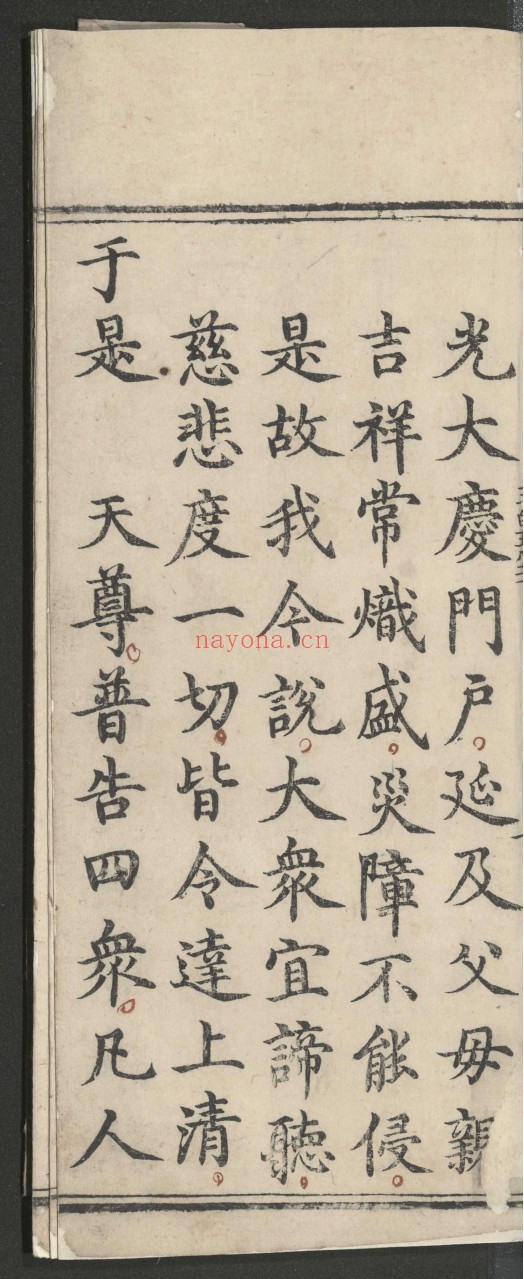 光大慶門户延及父毋親
吉祥常熾盛災障不能侵
是故我今說大衆宜諦聽
慈悲度一切皆令達上清
于是　天尊普告四衆凡人
nayona.cn